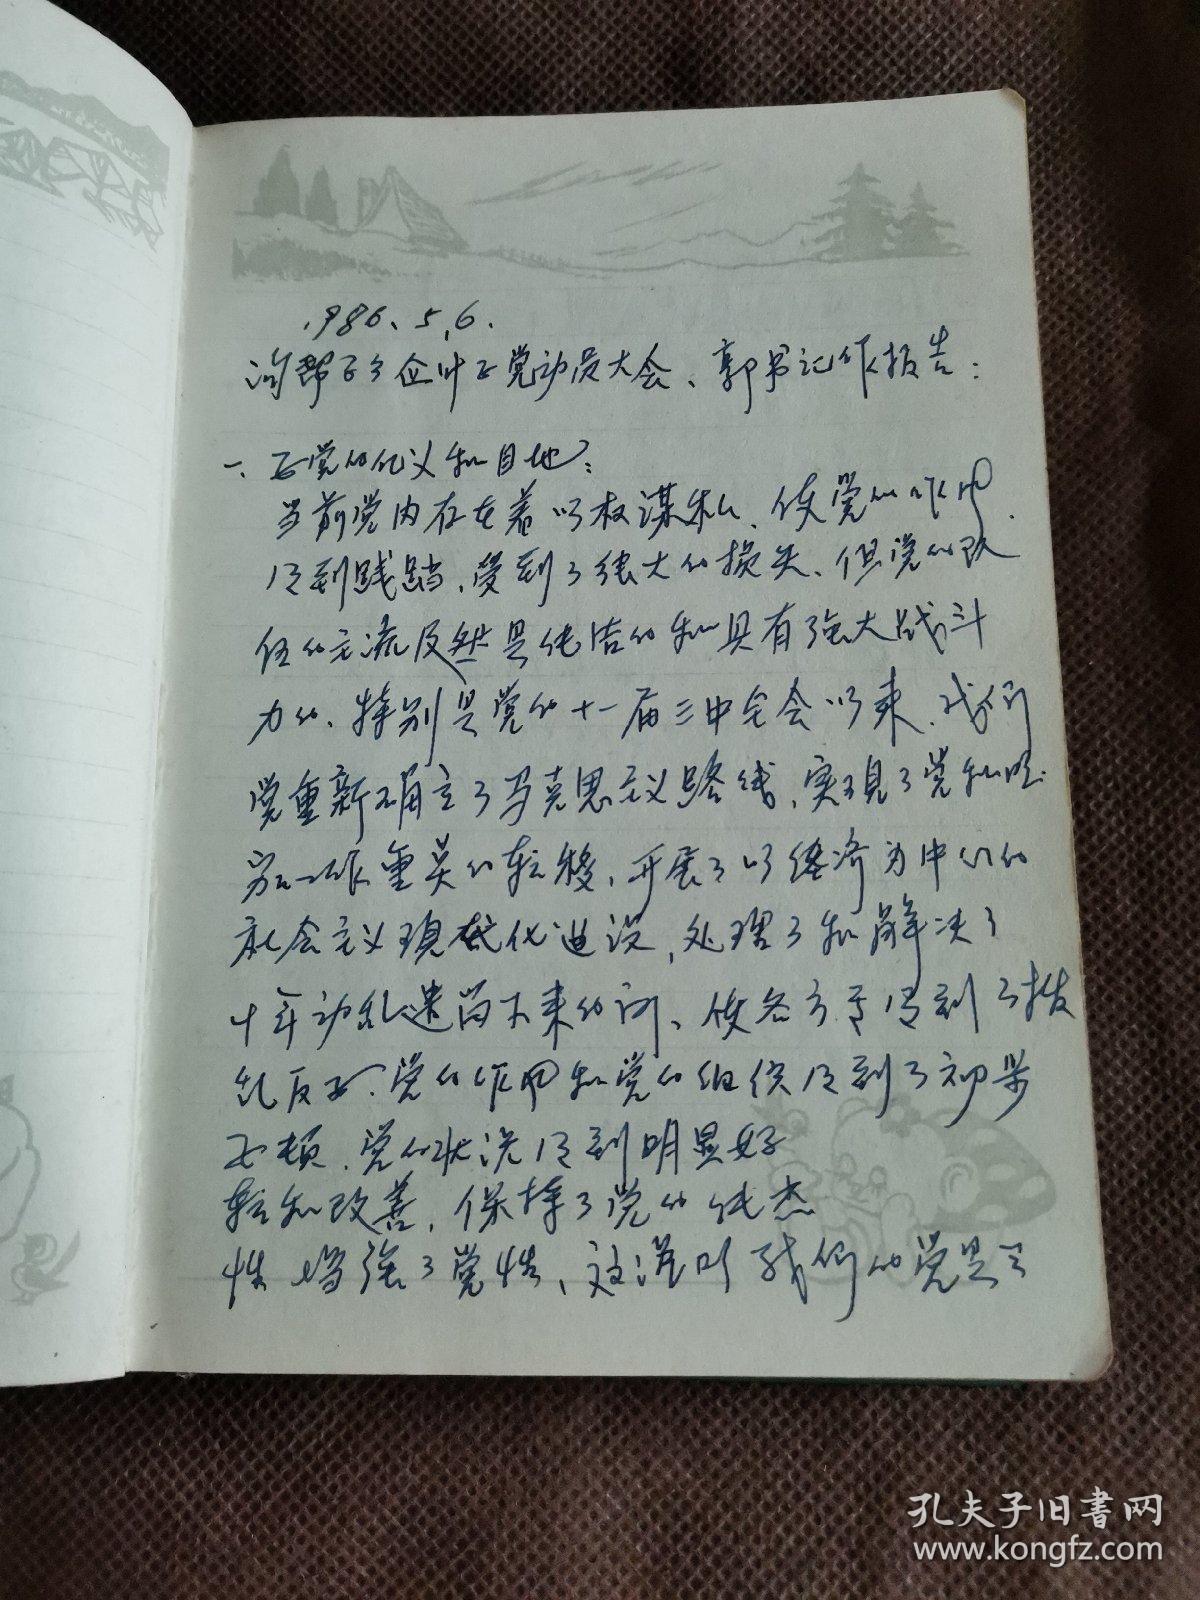 1986、5、6.
沟帮子乡企业正党动员大会、郭书记作报告：
一、正党的化义和目地：
当前党内存在着以权谋私、使党的作风
得到践踏、受到了很大的损失、但党的队
伍的主流反然是纯洁的和具有强大战斗
力的、特别是党的十一届三中全会以来、我们
党重新确立了马克思主义路线、实现了党和
重美的转移、开展了以经济为中心的
社会主义现代化建设、处理了和解决了
十年动乱遗留下来的问、使各方面得到了拨
乱反正、党的作风和党的组织得到了初步
正顿、党的状况得到明显好
转和改善、保持了党的纯杰
性 增强了党性、这说明我们的党是
孔夫子旧书网
www.kongfz.com